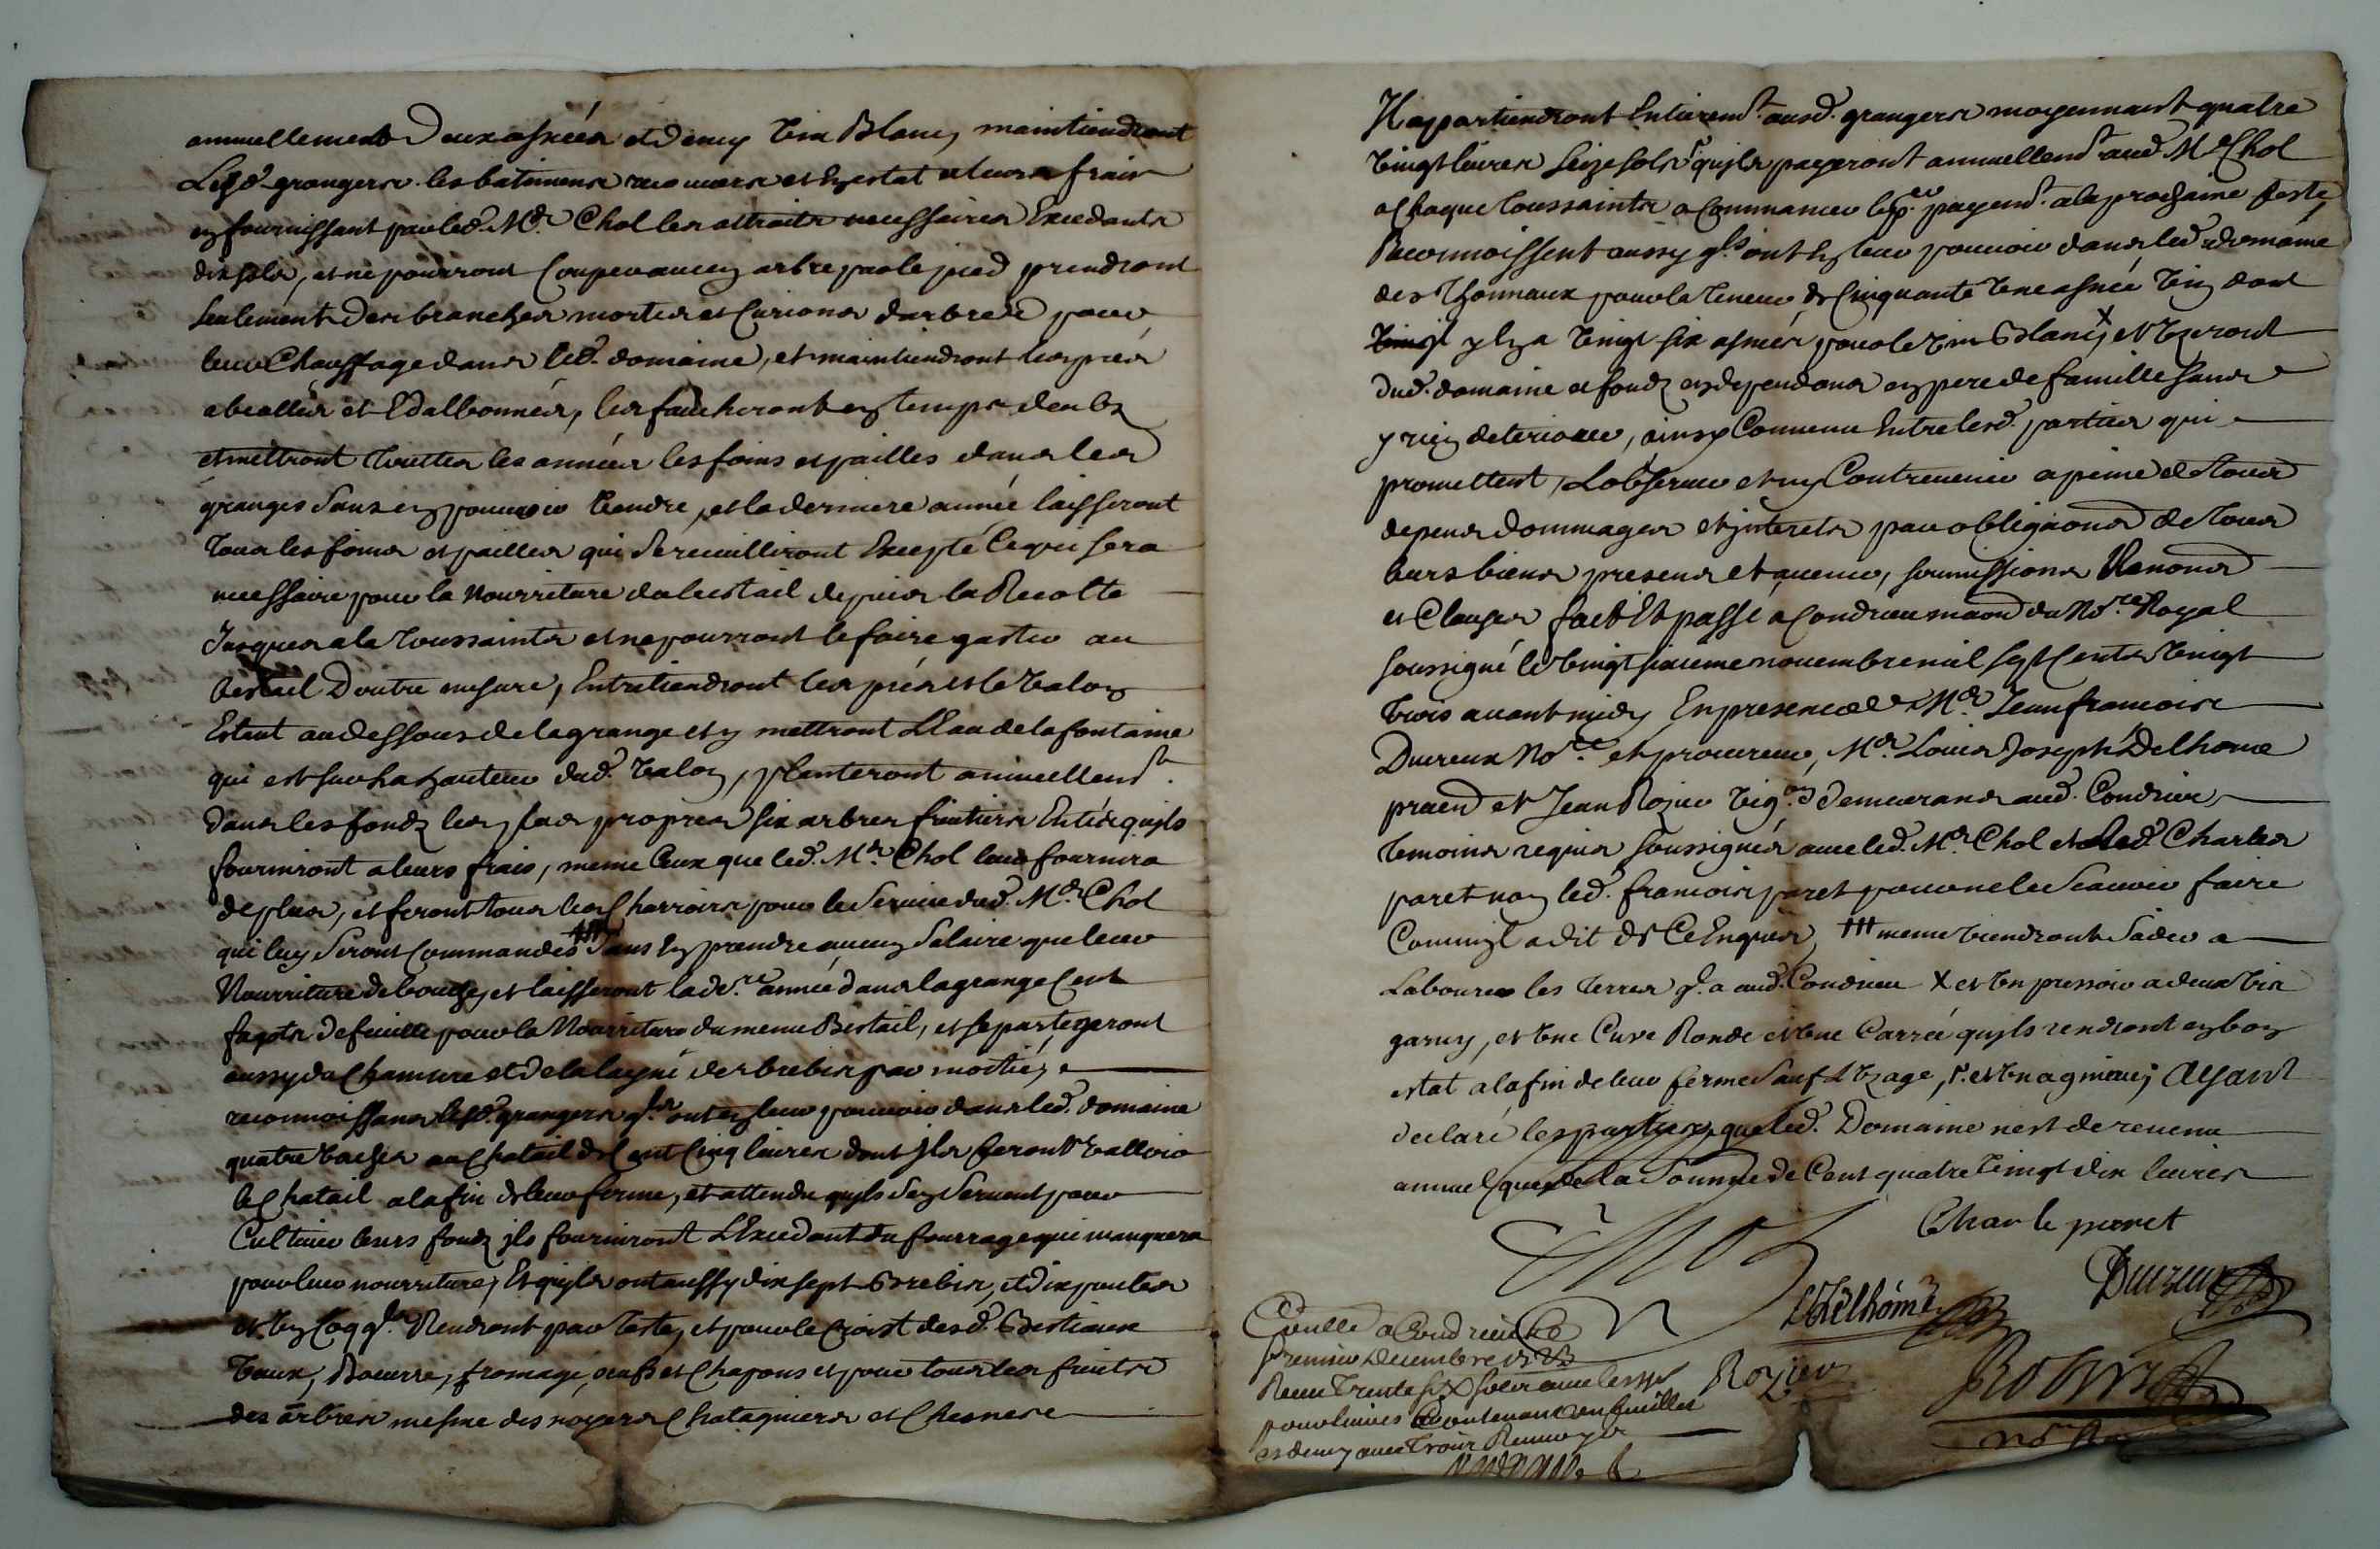 annuellement deux asnées et demy vin Blanc, maintiendront
Lesd. grangers les batimens recouvers et en estat a leurs frais
en fournissant par led. Mr. Chol les attraits necessaires Excedants
dix sols, et ne pourront Couper aucun arbre par le pied prendront
seulement des branches mortes et Curions d'arbres pour
leur Chauffage dans led. domaine, et maintiendront les prés
abeallés et Edalbonnés, les faucheront en temps deub
et mettront touttes les années les foins et pailles dans les
granges sans en pouvoir vendre, et la derniere année laisseront
tous les foins et pailles qui se reuilliront Excepté Ce qui sera
necessaire pour la Nourriture du bestail depuis la Recolte
Jusques a la toussaints et ne pourront le faire gaster au
bestail d'outre mesure, Entretiendront les prés et le valon
Estant au dessous de la grange et y mettront L'Eau de la fontaine
qui est sur la hauteur dud. valon, planteront annuellemt.
dans les fondz les plus propres six arbres fruitiers Entés quils
fourniront a leurs frais, meme Ceux que led. Mr. Chol leur fournira
de plus, et feront tous les Charrois pour le Service dud. Mr. Chol
qui luy Seront Commandés ††† sans En prendre aucun Salaire que leur
Nourriture de bouche, et laisseront la dre. année dans la grange Cent
fagots de feuille pour la Nourriture du menu Bestail, et se partageront
aussy du Chanvre et de la layne des brebis par moitié,
reconnoissans lesd. grangers qls. ont en leur pouvoir dans led. domaine
quatre vaches au Chatail de Cent Cinq livres dont jls feront valloir
le Chatail a la fin de leur ferme, et attendu quils s'en servent pour
Cultiver leurs fondz jls fourniront L'Excedant du fourrage qui manquera
pour leur nourriture, Et quils ont aussy dix sept Brebis, et dix poules
et un Coq qls. Rendront par teste, et pour le Croist desd. Bestiaux
Veaux, Boeurre, fromage, oeufs et Chapons et pour tous les fruits
des arbres mesme des noyers Chataigniers et Chesnes
Jl appartiendront Entieremt. ausd. grangers moyennant quatre
vingt livres seize sols quils payeront annuellemt. aud. Mr. Chol
a Chaque toussaints a Commancer le per. payemt. a la prochaine feste,
Reconnoissent aussy qls. ont En leur pouvoir dans led. domaine
des thonneaux pour la teneur de Cinquante une asnée vin dont
y En a vingt six asnées pour le vin Blanc, X et Uzeront
dud. domaine et fondz en dependans en pere de famille sans
y rien deteriorer, ainsy Convenu Entre lesd. parties qui
promettent L'observer et ny Contrevenir a peine de tous
depens dommages et jnterets par obligaons de tous
leurs biens presens et avenir, soumissions Renons
et Clauses fait Et passé a Condrieu maon du Nore. Royal
soussigné le vingt sixieme novembre mil sept Cents vingt
trois avant midy En presence de Mr. Jean francois
Ducreux Nore. et procureur, Mr. Louis Joseph Delhome
praen et Jean Rozier vign. demeurans aud. Condrieu,
temoins requis soussignés avec led. Mr. Chol et led. Charles
paret non led. francois paret pour ne le Scavoir faire
Comme jl a dit de Ce Enquis, ††† meme viendront s'ader a
Labourer les terres ql. a aud. Condrieu X et un pressoir a deux vis
garny, et une Cuve Ronde et une Carrée quils rendront en bon
estat a la fin de leur ferme sauf L'Uzage, et un agneau, Ayant
declaré les parties que led. Domaine n'est de revenu
annuel que de la Somme de Cent quatre vingt dix livres
Chol
Charle paret
Delhôme
Ducreux
Rozier
Controllé a Condrieu Ce
premier Decembre 1723
Receu trente six sols